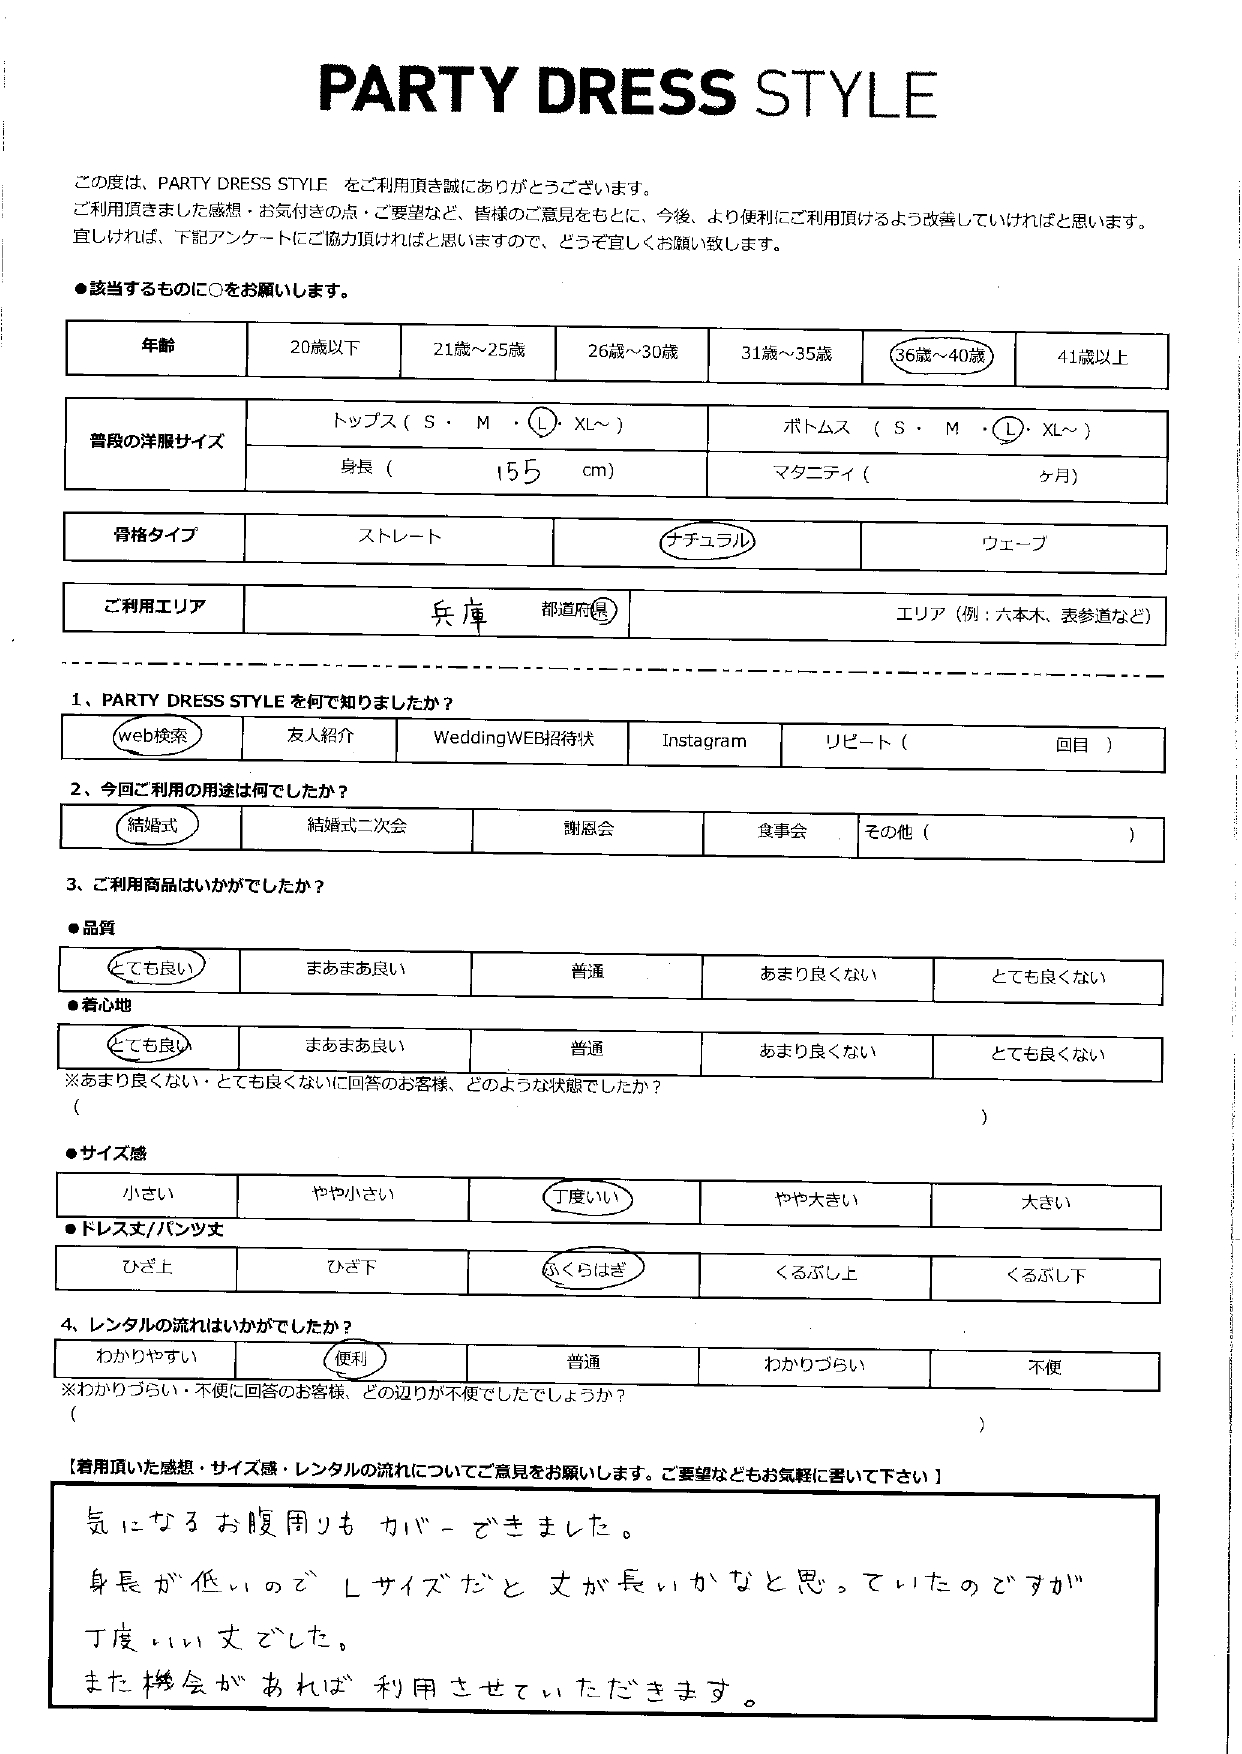 PARTY DRESS STYLE
この度は、PARTY DRESS STYLE をご利用頂き誠にありがとうございます。
ご利用頂きました感想・お気付きの点・ご要望など、皆様のご意見をもとに、今後、より便利にご利用頂けるよう改善していければと思います。
宜しければ、下記アンケートにご協力頂ければと思いますので、どうぞ宜しくお願い致します。
●該当するものに○をお願いします。
年齢 20歳以下 21歳～25歳 26歳～30歳 31歳～35歳 36歳～40歳 41歳以上
普段の洋服サイズ トップス ( S ・ M ・ L ・ XL～ ) ボトムス ( S ・ M ・ L ・ XL～ )
身長 ( 155 cm) マタニティ ( ヶ月)
骨格タイプ ストレート ナチュラル ウェーブ
ご利用エリア 兵庫 都道府県 エリア（例：六本木、表参道など）
1、PARTY DRESS STYLE を何で知りましたか？
web検索 友人紹介 WeddingWEB招待状 Instagram リピート ( 回目 )
2、今回ご利用の用途は何でしたか？
結婚式 結婚式二次会 謝恩会 食事会 その他 ( )
3、ご利用商品はいかがでしたか？
●品質
とても良い まあまあ良い 普通 あまり良くない とても良くない
●着心地
とても良い まあまあ良い 普通 あまり良くない とても良くない
※あまり良くない・とても良くないに回答のお客様、どのような状態でしたか？
( )
●サイズ感
小さい やや小さい 丁度いい やや大きい 大きい
●ドレス丈/パンツ丈
ひざ上 ひざ下 ふくらはぎ くるぶし上 くるぶし下
4、レンタルの流れはいかがでしたか？
わかりやすい 便利 普通 わかりづらい 不便
※わかりづらい・不便に回答のお客様、どの辺りが不便でしたでしょうか？
( )
【着用頂いた感想・サイズ感・レンタルの流れについてご意見をお願いします。ご要望などもお気軽に書いて下さい 】
気になるお腹周りも カバーできました。
身長が低いので Lサイズだと 丈が長いかなと思っていたのですが
丁度いい丈でした。
また機会があれば 利用させていただきます。